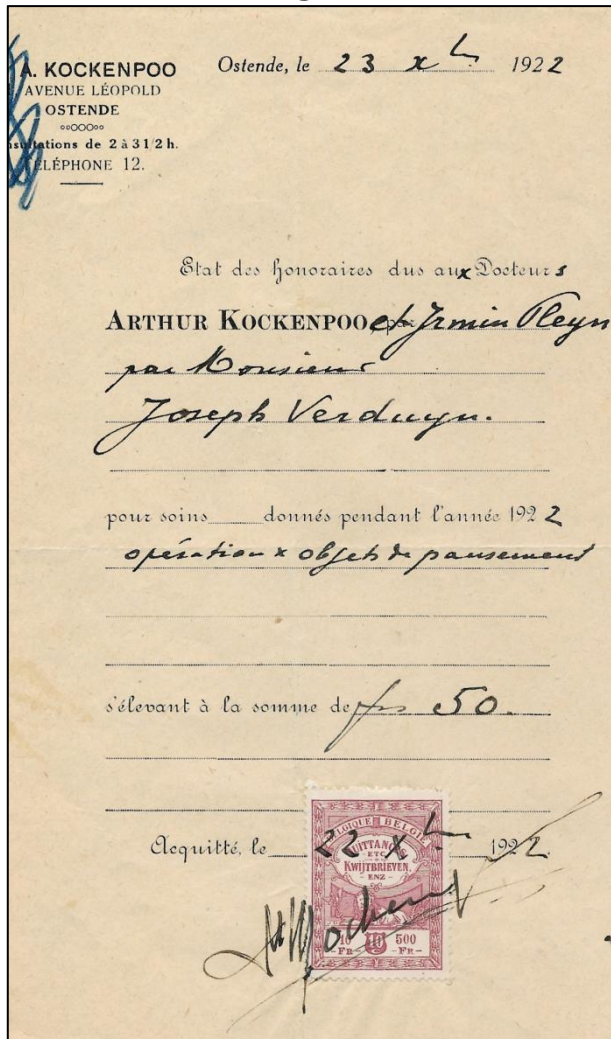 A. KOCKENPOO
AVENUE LÉOPOLD
OSTENDE
nsultations de 2 à 3 1/2 h.
TÉLÉPHONE 12.
Ostende, le 23 xbre 1922
Etat des honoraires dus aux Docteurs
ARTHUR KOCKENPOO et Irmin Pleyn
par Monsieur
Joseph Verduyn.
pour soins donnés pendant l'année 1922
opération x objets de pansement
s'élevant à la somme de frs 50.
Acquitté, le 22 Xbre 1922
BELGIQUE BELGIË
QUITTANCES
ETC
KWIJTBRIEVEN
ENZ
10 FR 10 500 FR